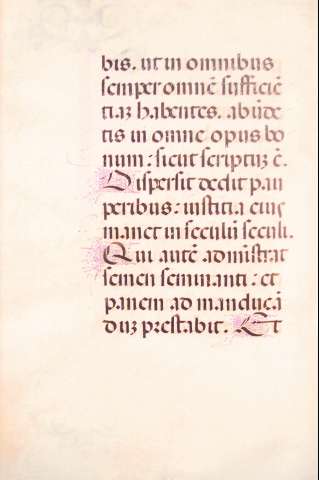 bis. ut in omnibus
semper omnē sufficiē
tiaȝ habentes. abūde
tis in omne opus bo
num: sicut scriptuȝ ē.
Dispersit dedit pau
peribus: iustitia eius
manet in seculū seculi.
Qui autē admīstrat
semen seminanti: et
panem ad manducā
duȝ prestabit. Et